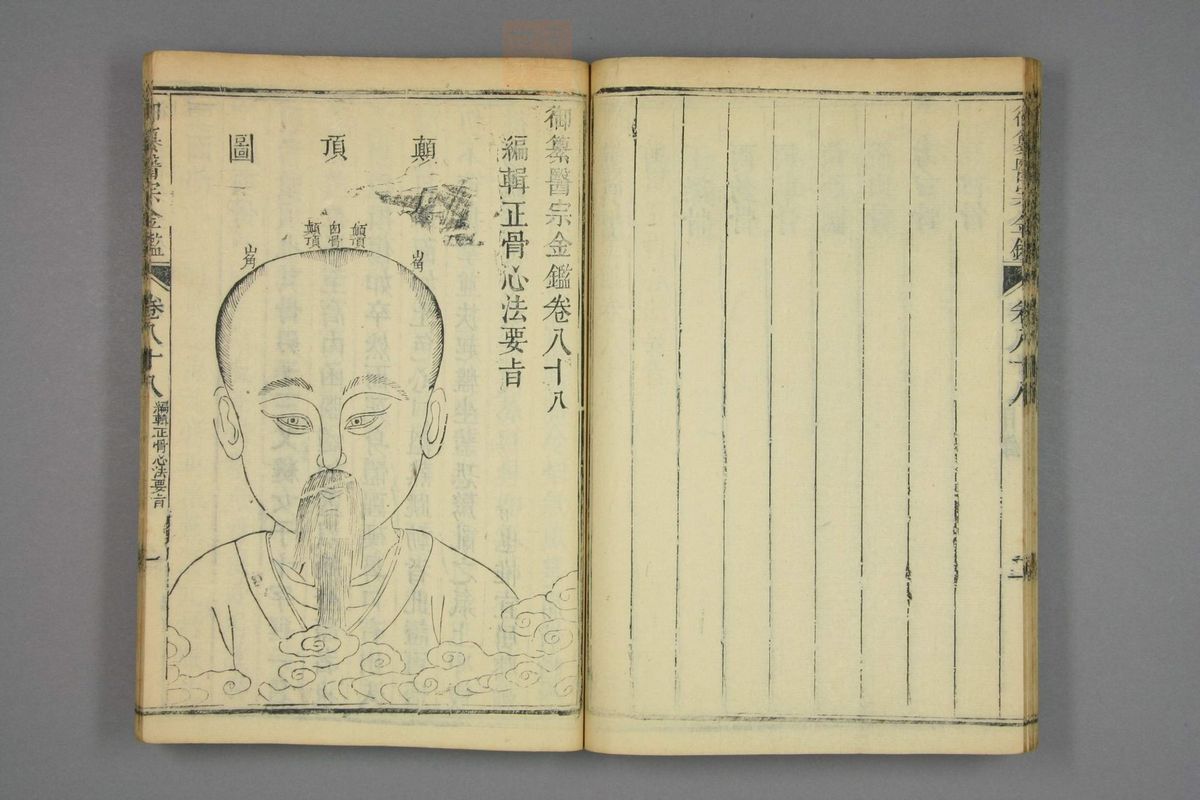 御纂醫宗金鑑
卷八十八
御纂醫宗金鑑卷八十八
編輯正骨心法要旨
顛頂圖
山角
顛頂
囟骨
顛頂
山角
御纂醫宗金鑑
卷八十八
編輯正骨心法要旨
一